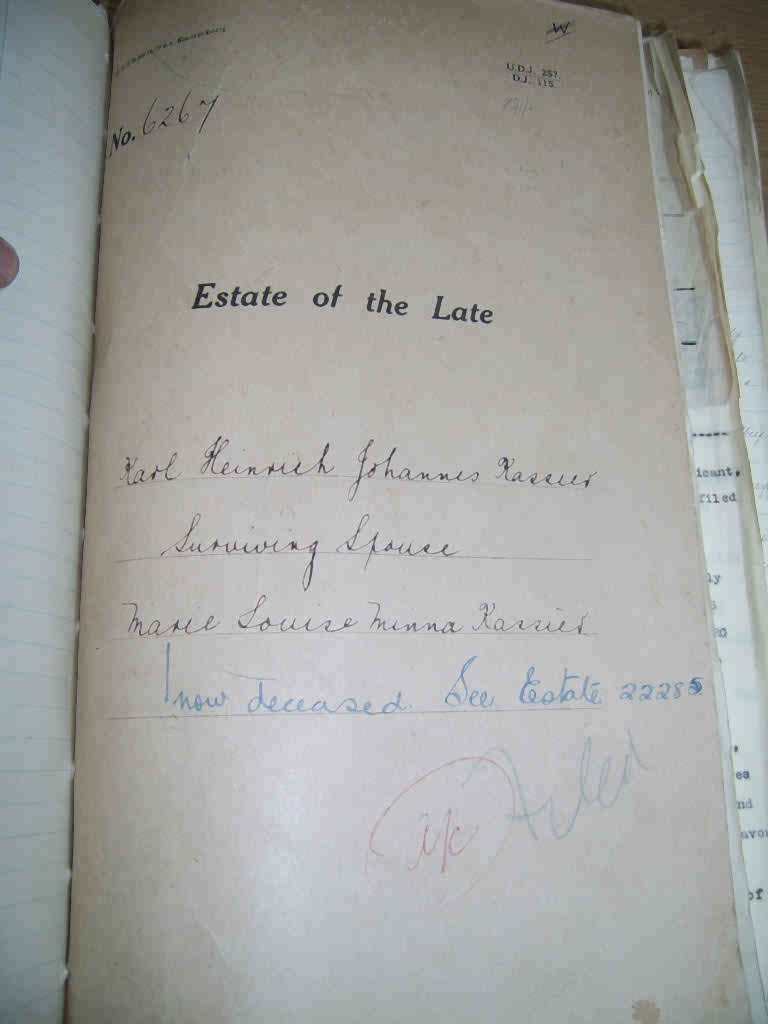 W
U.D.J. 257.
D.J. 115.
No. 6267
Estate of the Late
Karl Heinrich Johannes Kassier
Surviving Spouse
Marie Louise Minna Kassier
now deceased. See Estate 22285
icant,
filed
ly
es
nd
avou
of